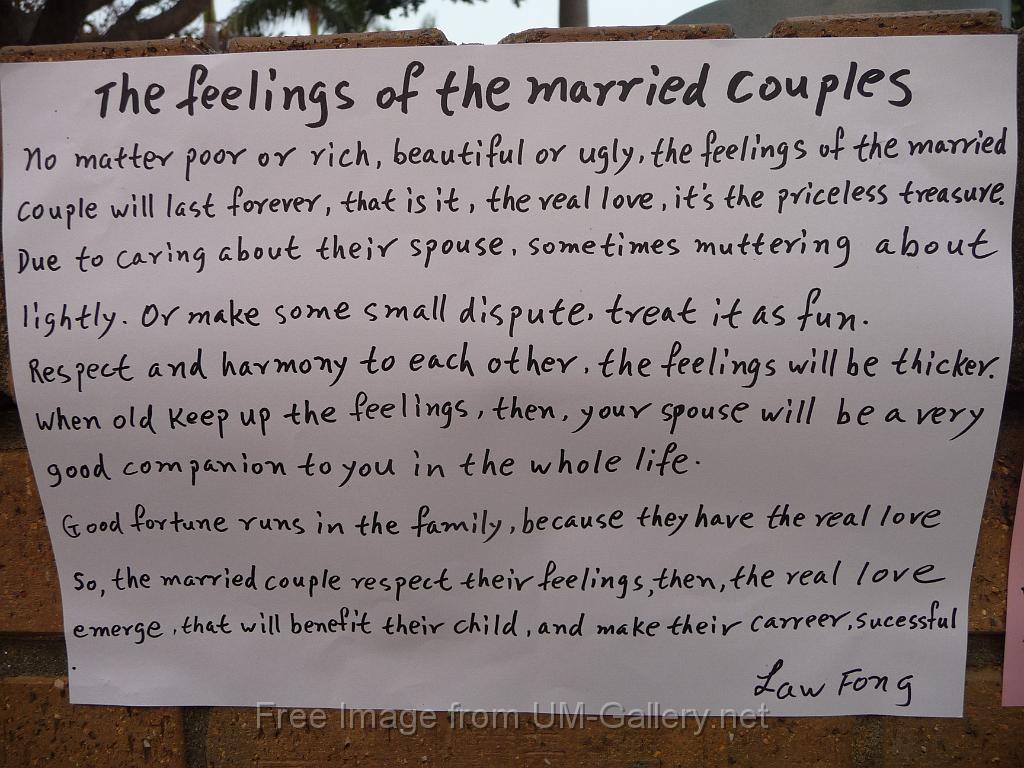 The feelings of the married couples
No matter poor or rich, beautiful or ugly, the feelings of the married
couple will last forever, that is it, the real love, it's the priceless treasure.
Due to caring about their spouse, sometimes muttering about
lightly. Or make some small dispute, treat it as fun.
Respect and harmony to each other, the feelings will be thicker.
When old keep up the feelings, then, your spouse will be a very
good companion to you in the whole life.
Good fortune runs in the family, because they have the real love
So, the married couple respect their feelings, then, the real love
emerge, that will benefit their child, and make their carreer, sucessful
Law Fong
Free Image from UM-Gallery.net